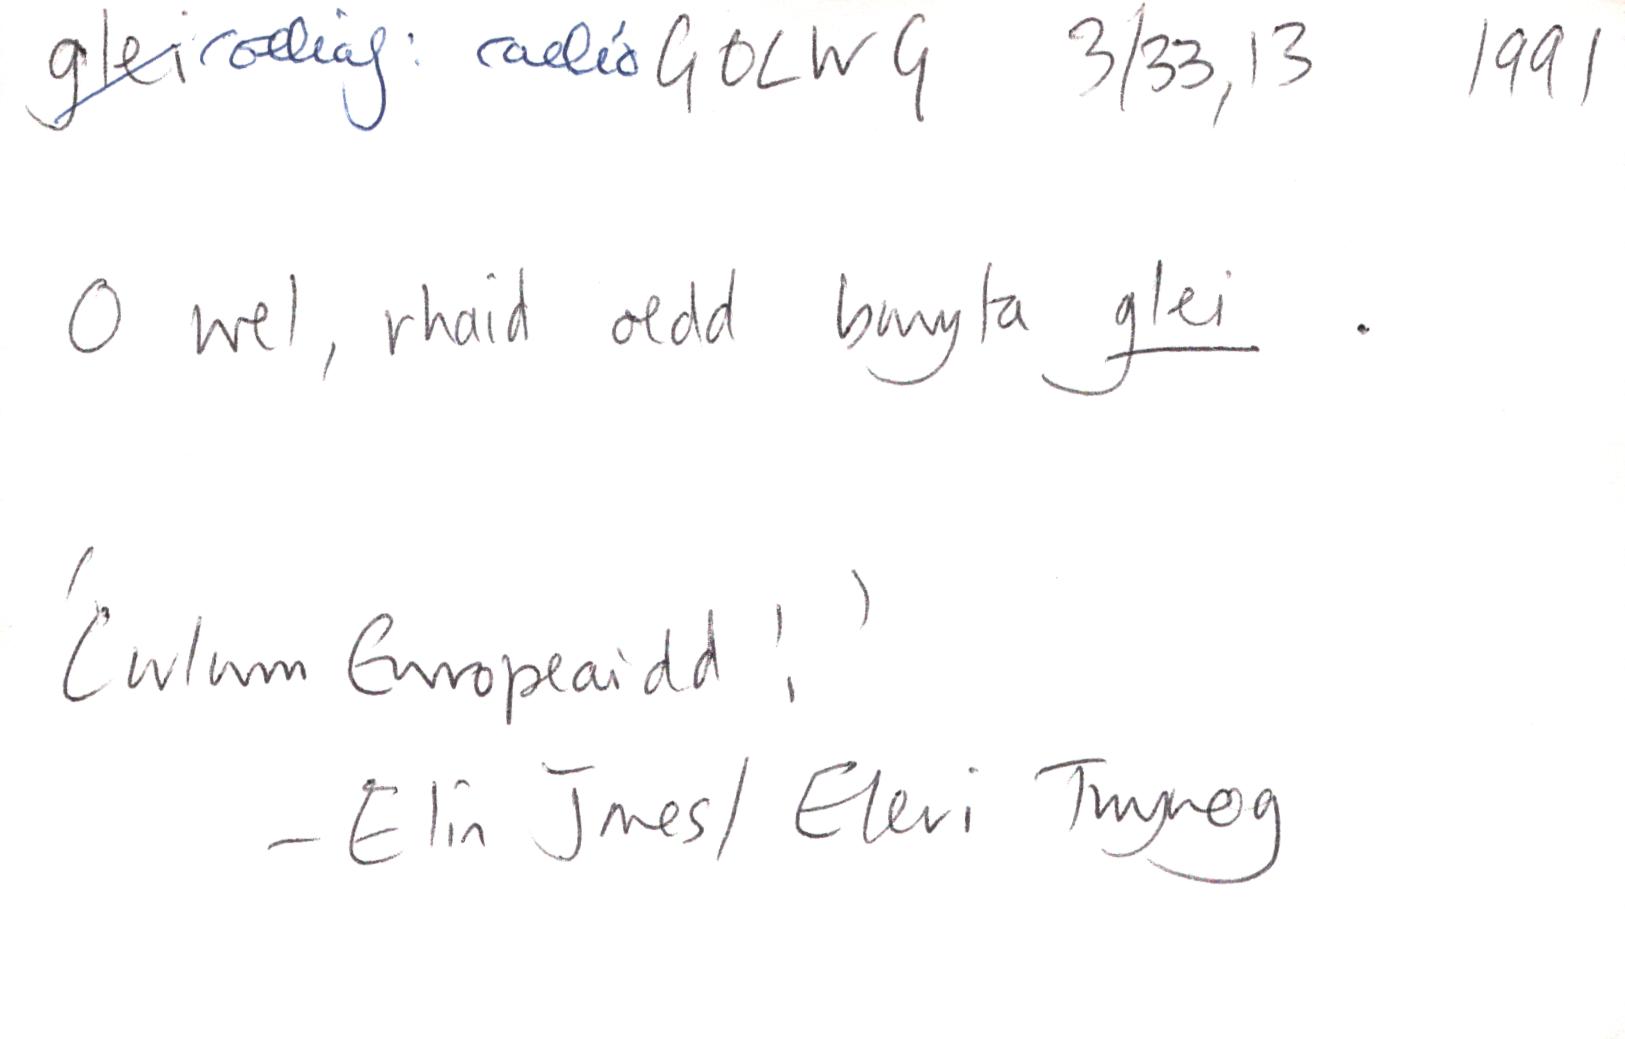 glei rodiaf: radio GOLWG 3/33,13 1991
O wel, rhaid oedd bwyta glei .
'Cwlwm Ewropeaidd!'
- Elin Jones/ Eleri Twynog